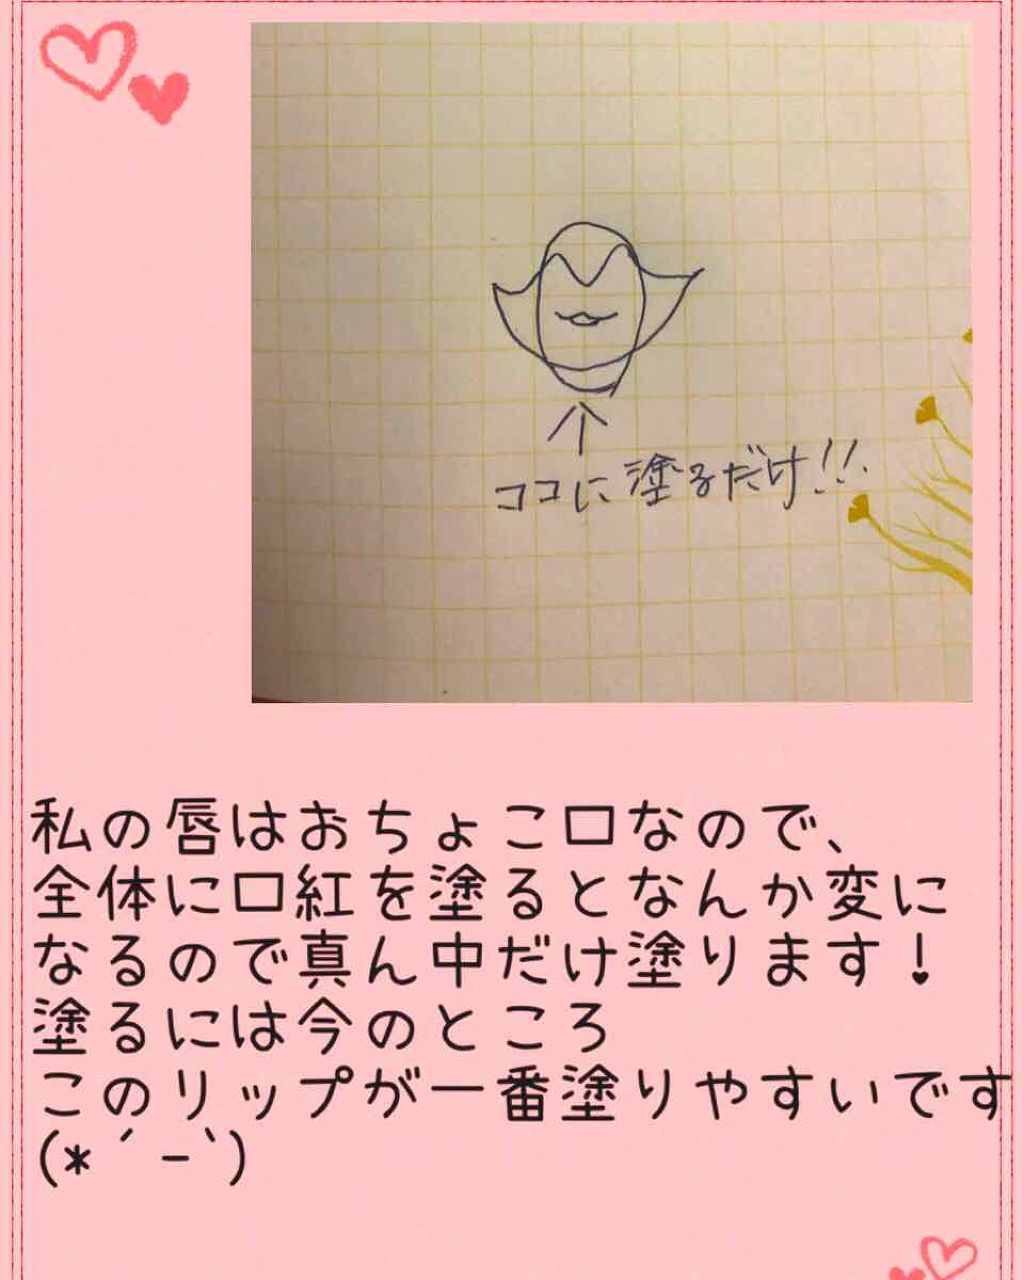 ココに塗るだけ!!
私の唇はおちょこ口なので、
全体に口紅を塗るとなんか変に
なるので真ん中だけ塗ります!
塗るには今のところ
このリップが一番塗りやすいです
(*´-`)